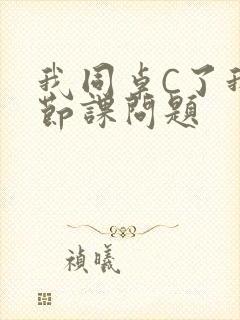 我同桌C了我
節課問題
禎曦